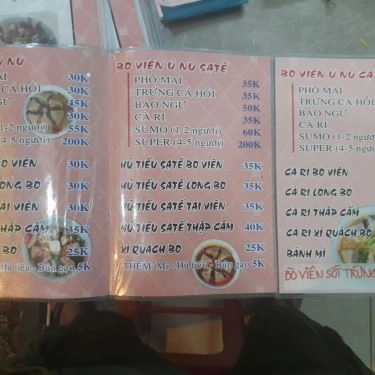 Ú NÚ
MAI 30K
TRỨNG CÁ HỒI 30K
NGƯ 45K
RI 30K
(1-2 người) 55K
(4-5 người) 200K
VIÊN 30K
LONG BÒ 30K
TÁI VIÊN 30K
THẬP CẨM
BÒ 25K
Hủ tiếu - Bún gạo 5K
BÒ VIÊN Ú NU SATẾ
PHÔ MAI 35K
TRỨNG CÁ HỒI 35K
BÀO NGƯ 50K
CÀ RI 35K
SUMO (1-2 người) 60K
SUPER (4-5 người) 200K
HỦ TIẾU SATẾ BÒ VIÊN 35K
HỦ TIẾU SATẾ LONG BÒ 35K
HỦ TIẾU SATẾ TÁI VIÊN 35K
HỦ TIẾU SATẾ THẬP CẨM 40K
XÍ QUÁCH BÒ 25K
THÊM: Mì - Hủ tiếu - Bún gạo 5K
BÒ VIÊN Ú NU CÀ
PHÔ MAI
TRỨNG CÁ HỒI
BÀO NGƯ
CÀ RI
SUMO (1-2 người)
SUPER (4-5 người)
CÀ RI BÒ VIÊN
CÀ RI LONG BÒ
CÀ RI THẬP CẨM
CÀ RI XÍ QUÁCH BÒ
BÁNH MÌ
BÒ VIÊN SỐT TRỨNG